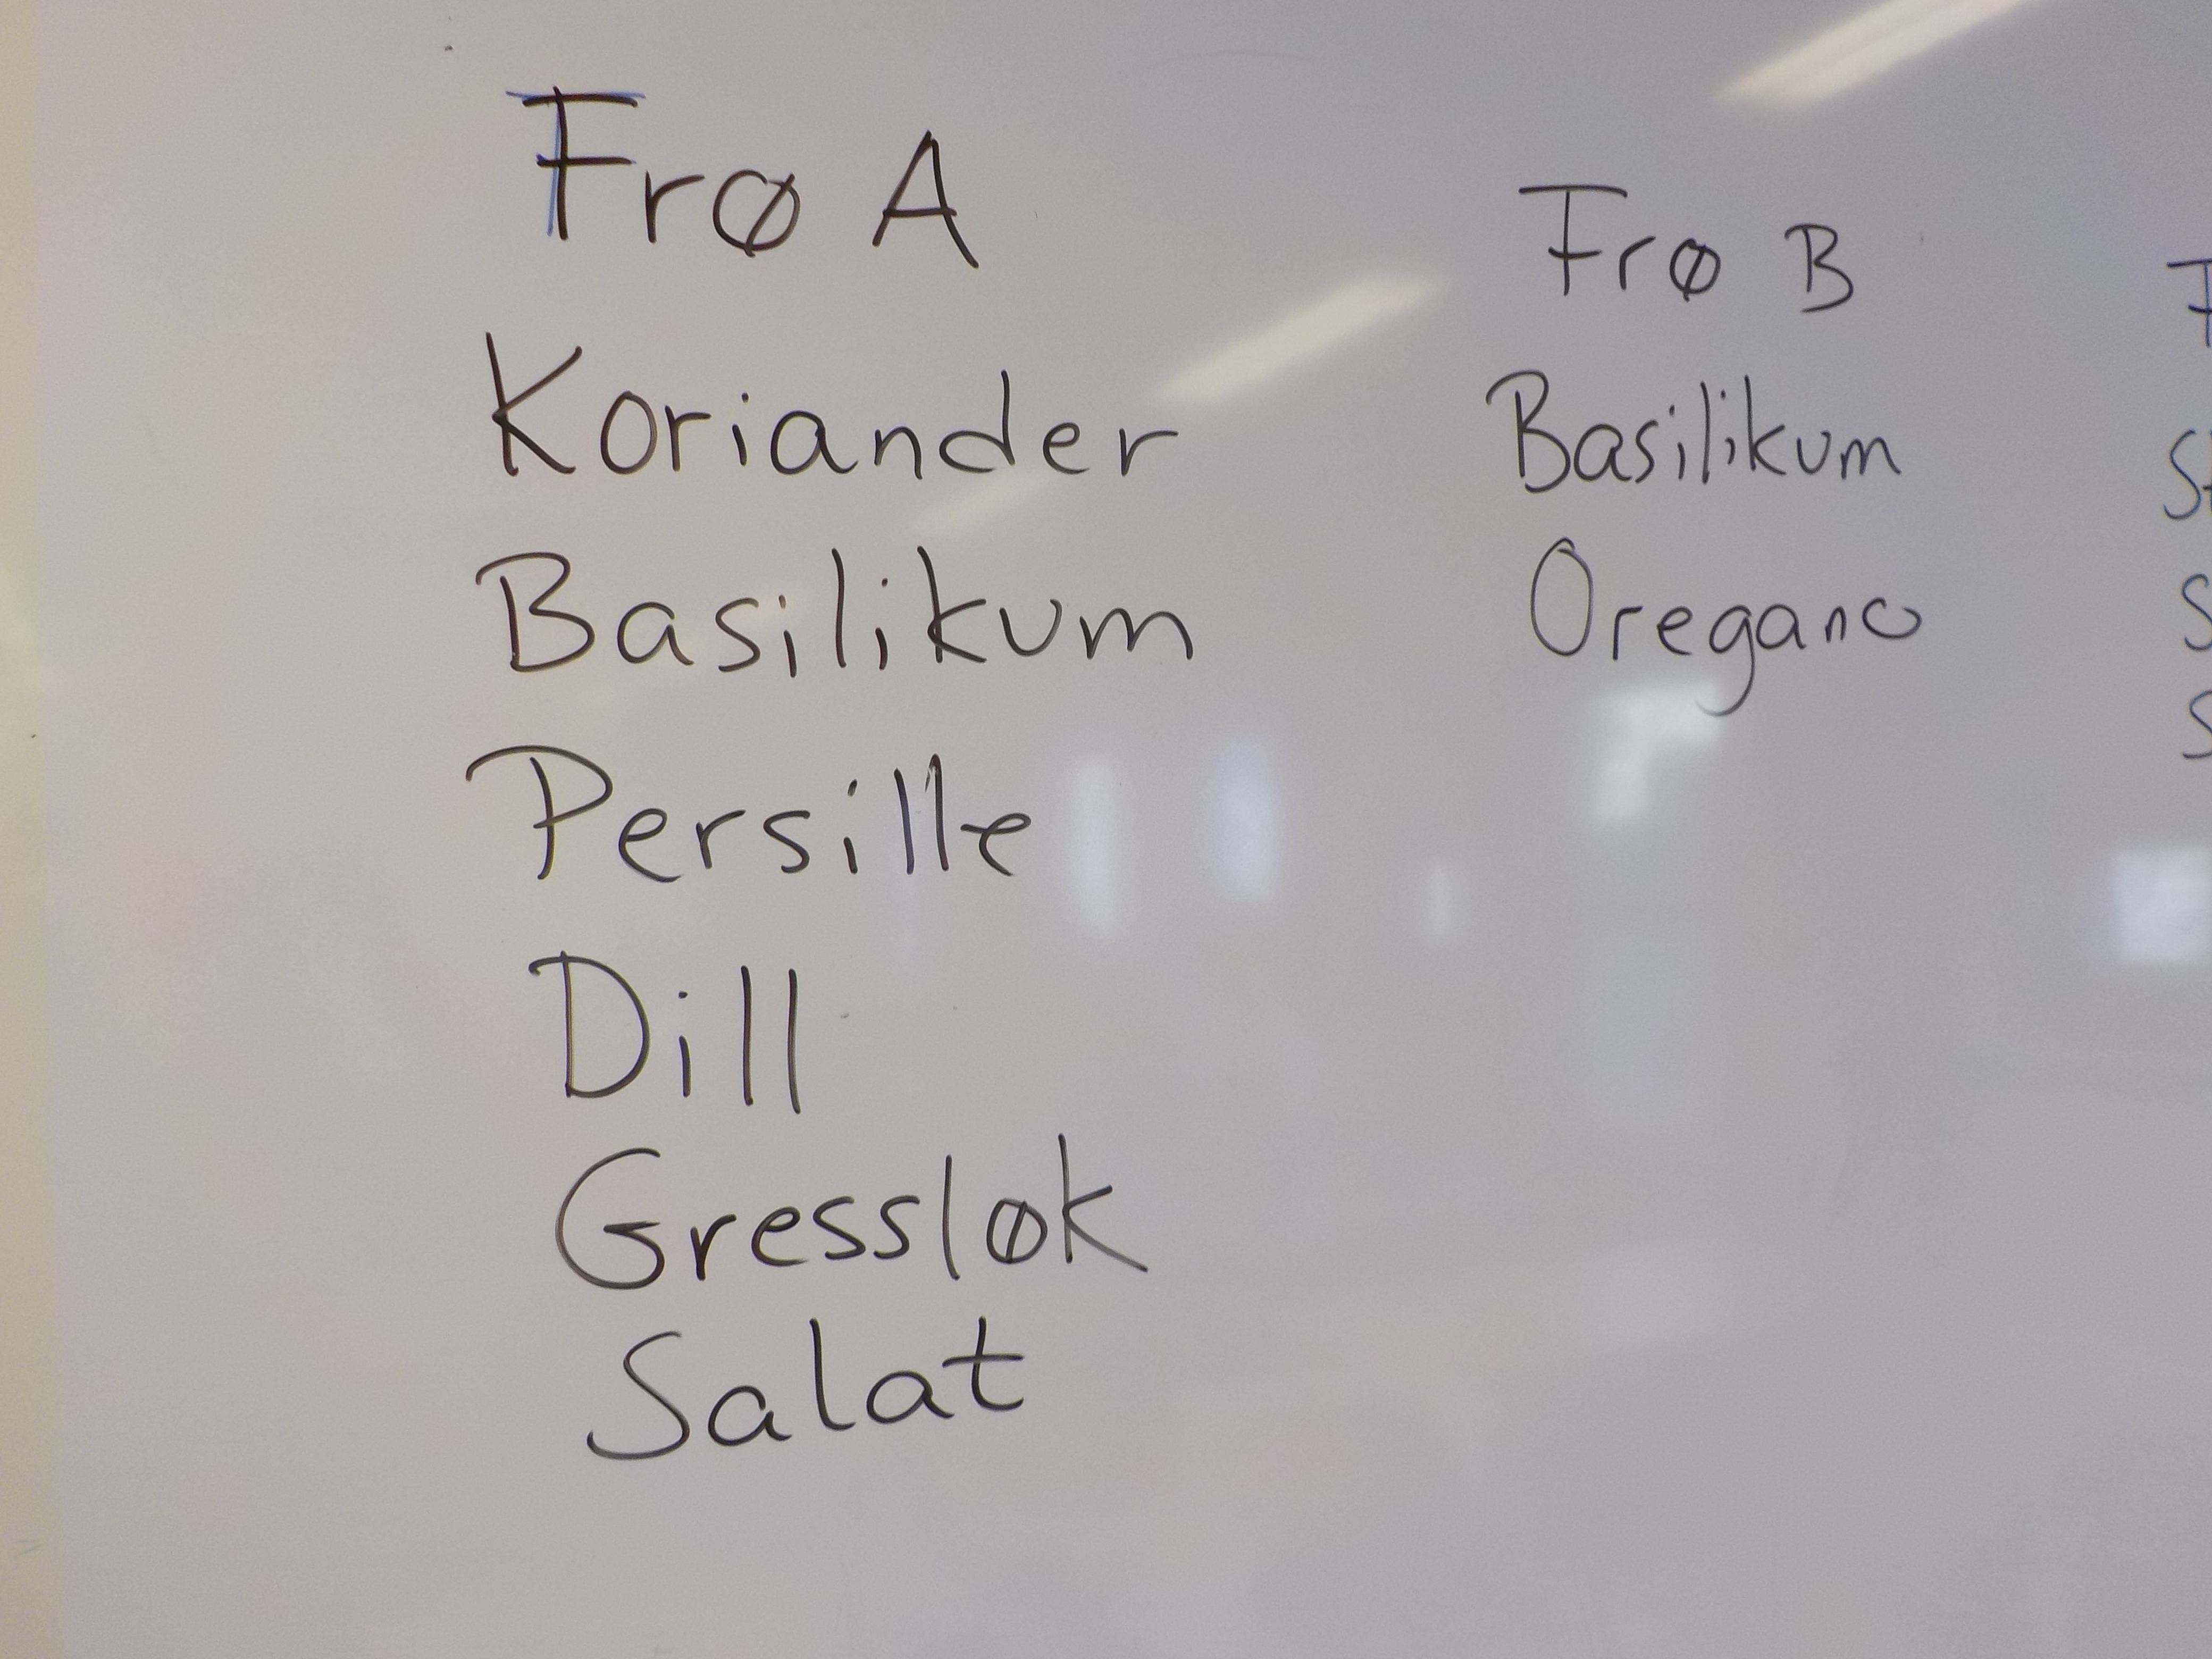 Frø A
Koriander
Basilikum
Persille
Dill
Gressløk
Salat
Frø B
Basilikum
Oregano